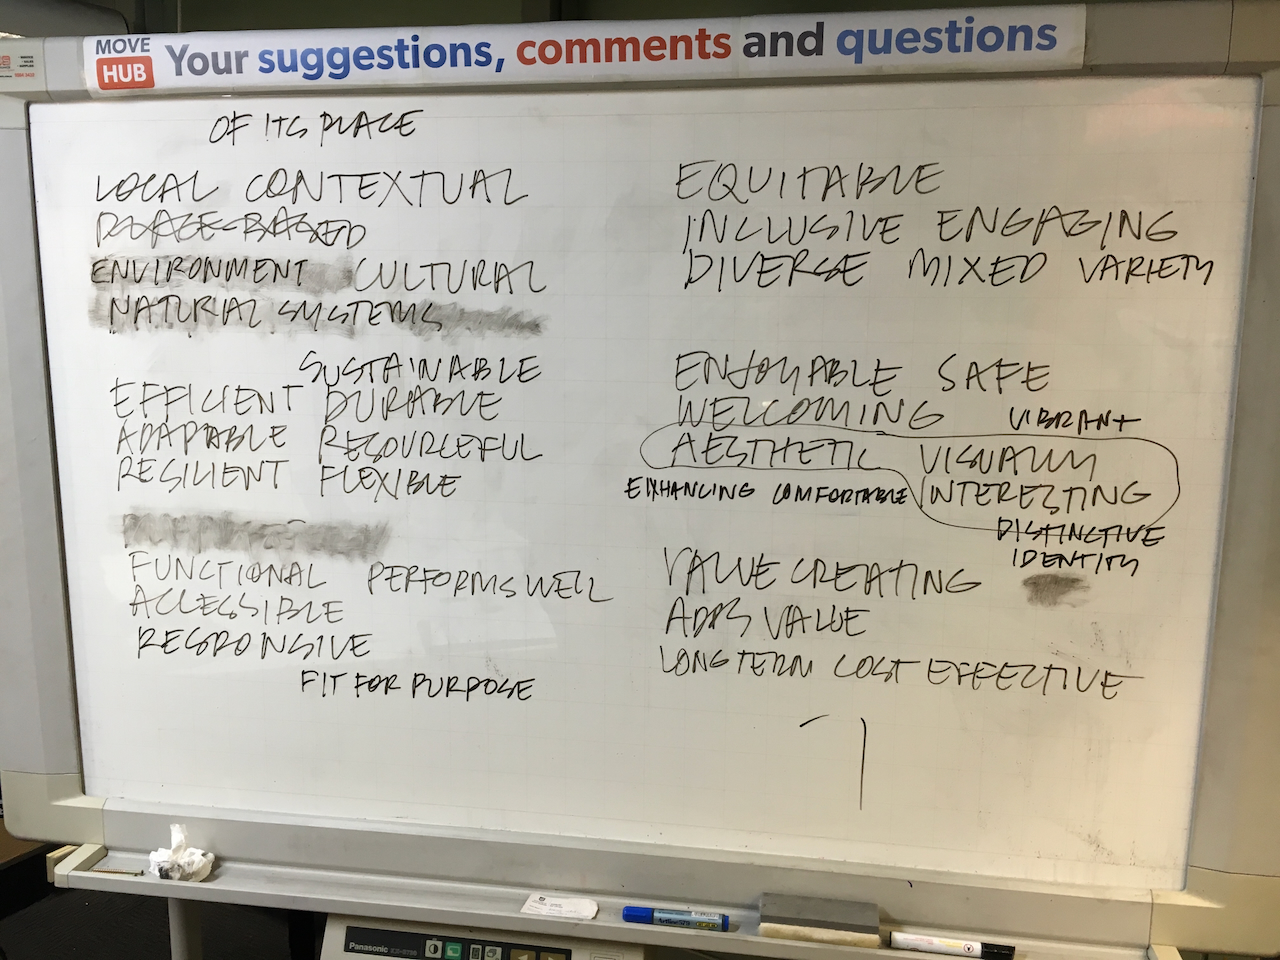 MOVE HUB Your suggestions, comments and questions
OF ITS PLACE
LOCAL CONTEXTUAL
PLACE-BASED
ENVIRONMENT CULTURAL
NATURAL SYSTEMS
SUSTAINABLE
EFFICIENT DURABLE
ADAPTABLE RESOURCEFUL
RESILIENT FLEXIBLE
FUNCTIONAL PERFORMS WELL
ACCESSIBLE
RESPONSIVE
FIT FOR PURPOSE
EQUITABLE
INCLUSIVE ENGAGING
DIVERSE MIXED VARIETY
ENJOYABLE SAFE
WELCOMING VIBRANT
AESTHETIC VISUALLY
ENHANCING COMFORTABLE INTERESTING
DISTINCTIVE
IDENTITY
VALUE CREATING
ADDS VALUE
LONG TERM COST EFFECTIVE
Panasonic